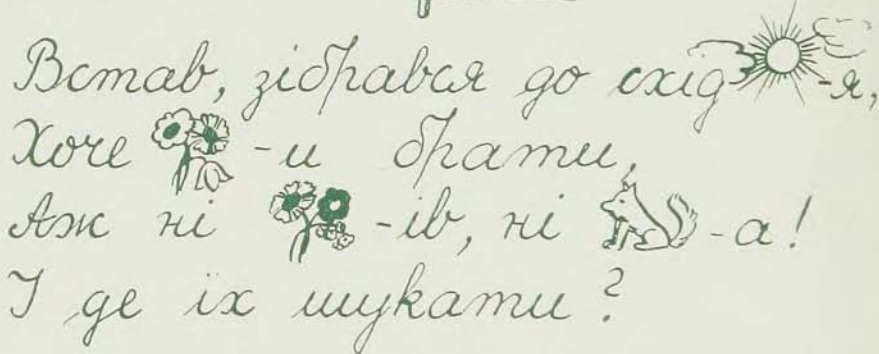 Встав, зібрався до схід -я,
Хоче -и брати,
Аж ні -ів, ні -а!
І де їх шукати?